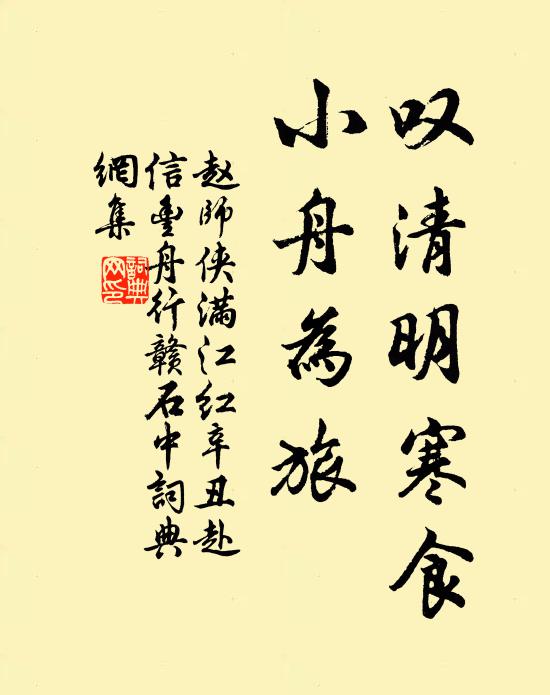 叹清明寒食
小舟為旅
赵师侠满江红辛丑赴
信豊舟行赣石中詞典
網集
詞典
网印